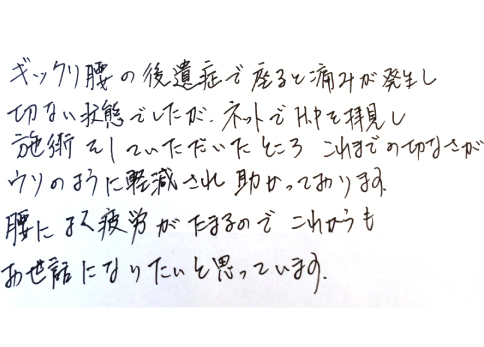 ギックリ腰の後遺症で座ると痛みが発生し
切ない状態でしたが、ネットでH.Pを拝見し
施術をしていただいたところ これまでの切なさが
ウソのように軽減され 助かっております。
腰によく疲労がたまるので これからも
お世話になりたいと思っています。